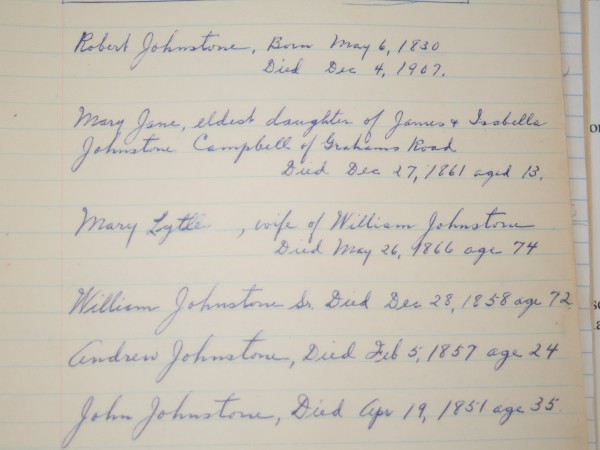 Robert Johnstone, Born May 6, 1830
Died Dec 4, 1907.
Mary Jane, eldest daughter of James & Isabella
Johnstone Campbell of Grahams Road
Died Dec 27, 1861 aged 13.
Mary Lytle , wife of William Johnstone
Died May 26, 1866 age 74
William Johnstone Sr. Died Dec 28, 1858 age 72
Andrew Johnstone, Died Feb 5, 1857 age 24
John Johnstone, Died Apr 19, 1851 age 35.